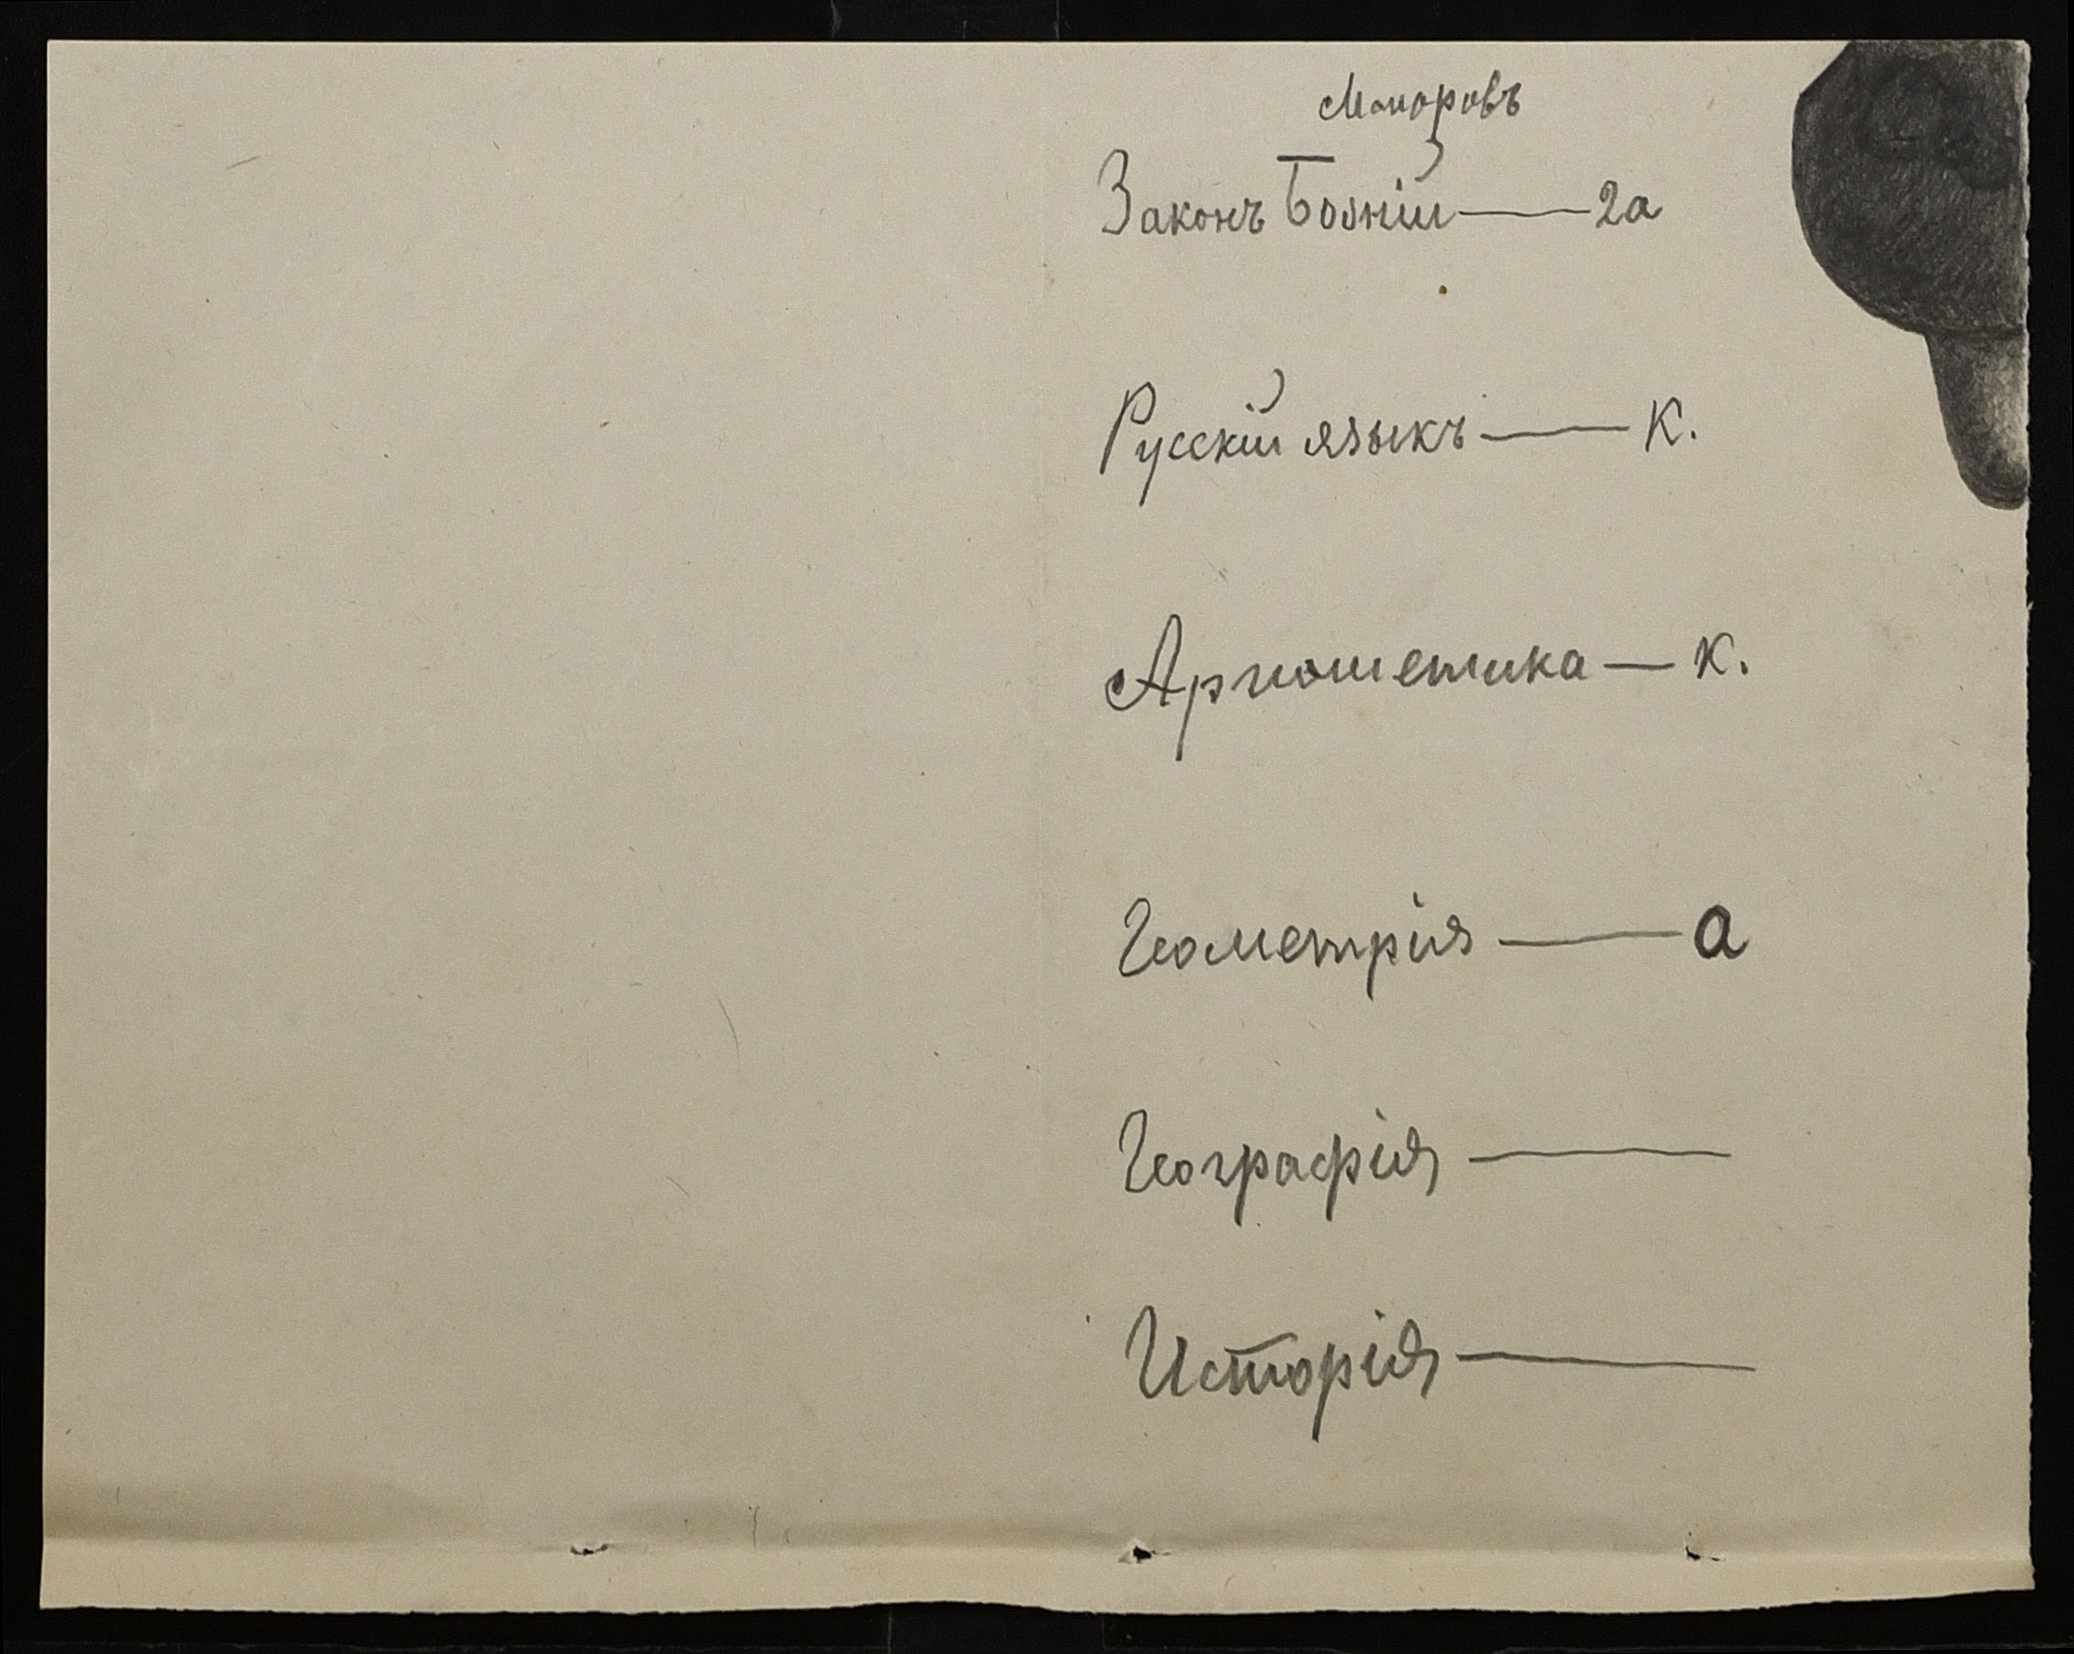 Маіоровъ
Законъ Божій — 2а
Русскій языкъ — К.
Ариөметика — К.
Геометрія — а
Географія —
Исторія —